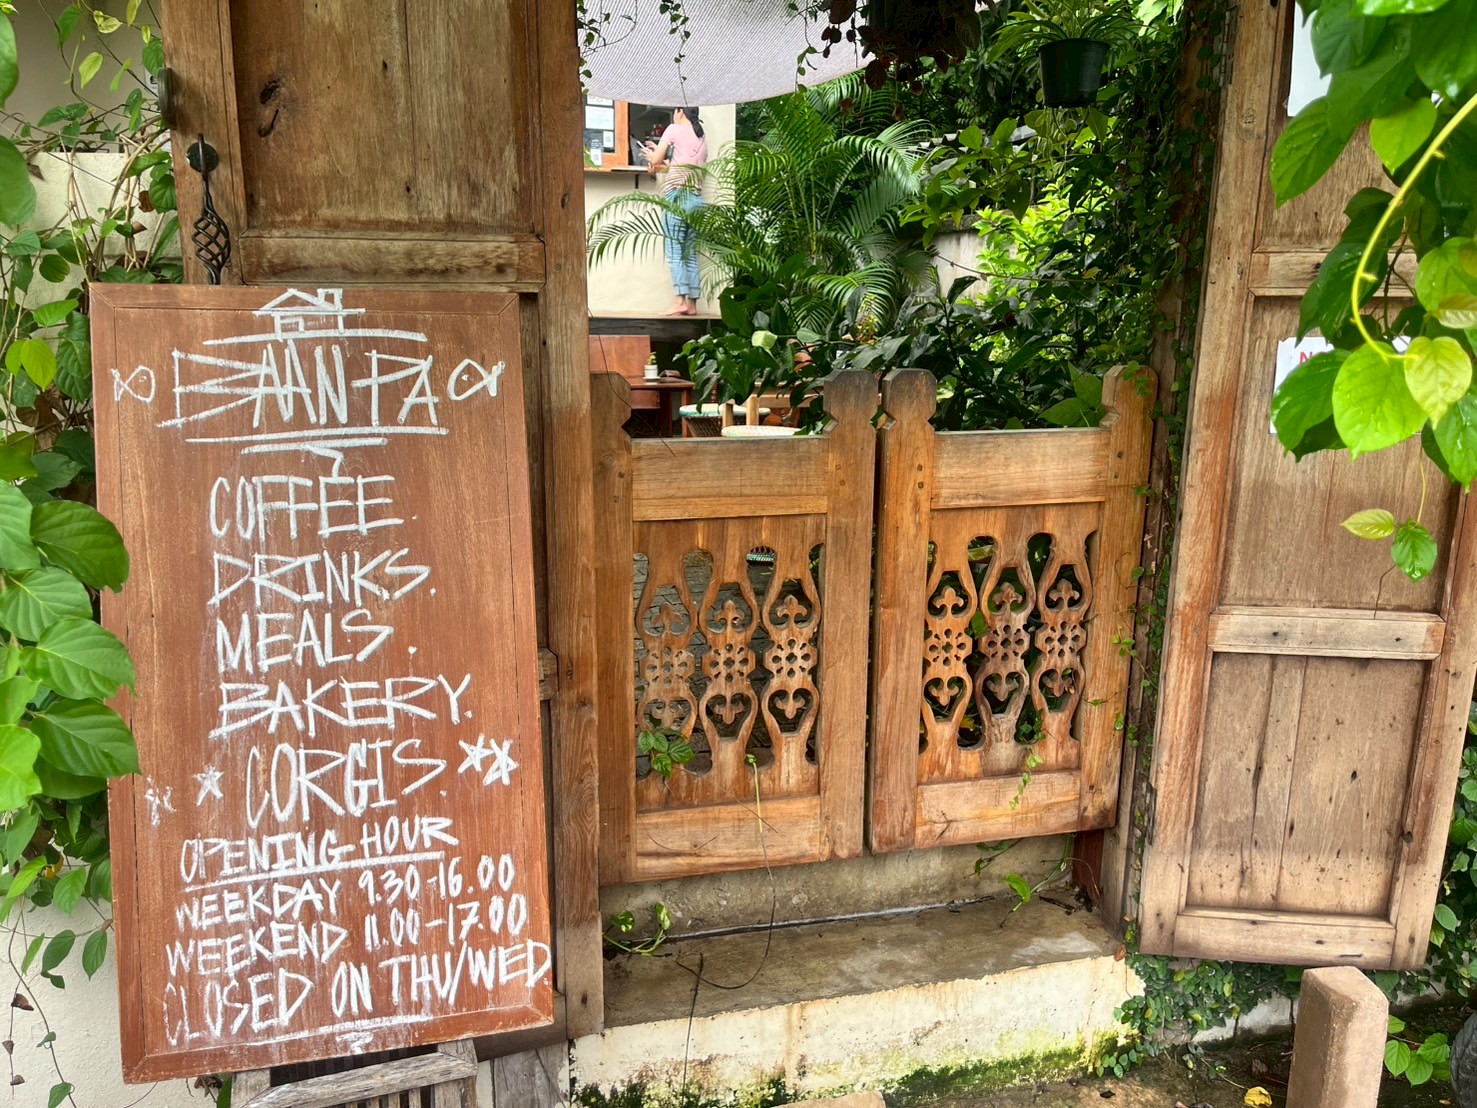 BAAN PA
COFFEE.
DRINKS.
MEALS.
BAKERY.
CORGIS.
OPENING HOUR
WEEKDAY 9.30-16.00
WEEKEND 11.00-17.00
CLOSED ON THU/WED